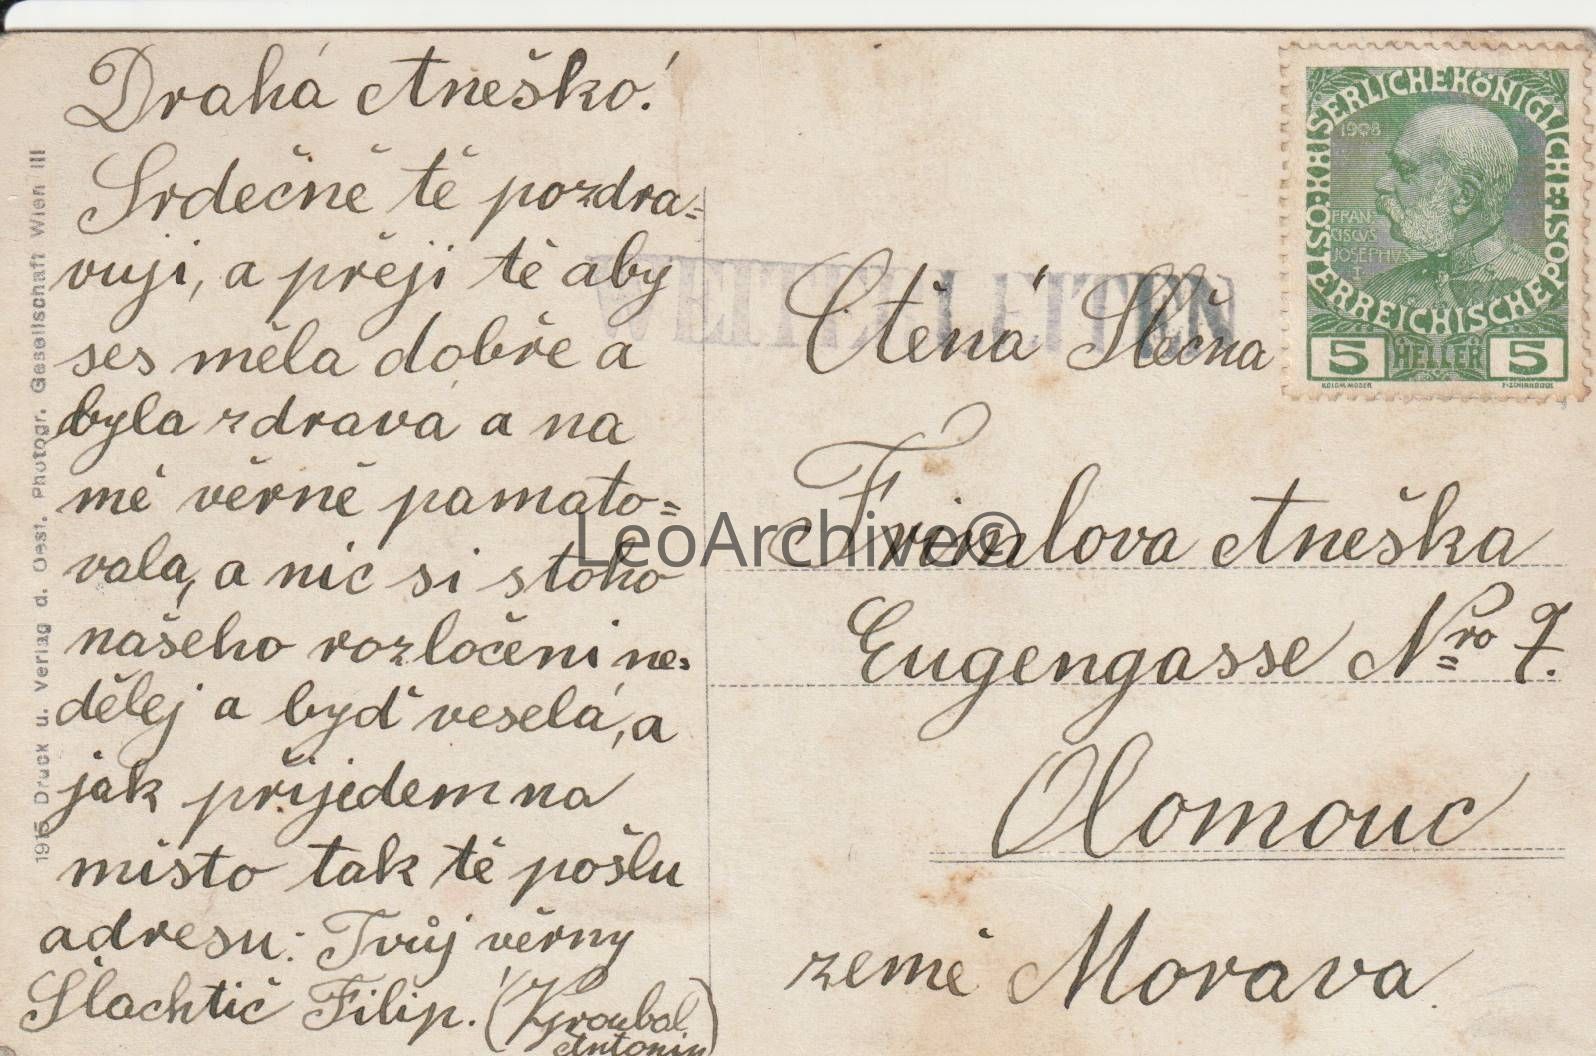 Drahá Aneško!
Srdečně tě pozdra=
vuji, a přeji tě aby
ses měla dobře a
byla zdráva a na
mě věrně pamato=
vala, a nic si s toho
našeho rozločeni ne=
dělej a byď veselá, a
jak přijedem na
místo tak tě pošlu
adresu: Tvůj věrny
Šlachtič Filip. (
Antonin)
1915 Druck u. Verlag d. Oest. Photogr. Gesellschaft Wien III
KAISERLICHE KÖNIGLICHE ÖSTERREICHISCHE POST
1908
FRAN
CISCVS
JOSEPHVS
I
5 HELLER 5
KOLOM.MOSER F.SCHIRNBÖCK
Ctěná Slečna
Aneška
Eugengasse Nro 7.
Olomouc
země Morava
LeoArchive©